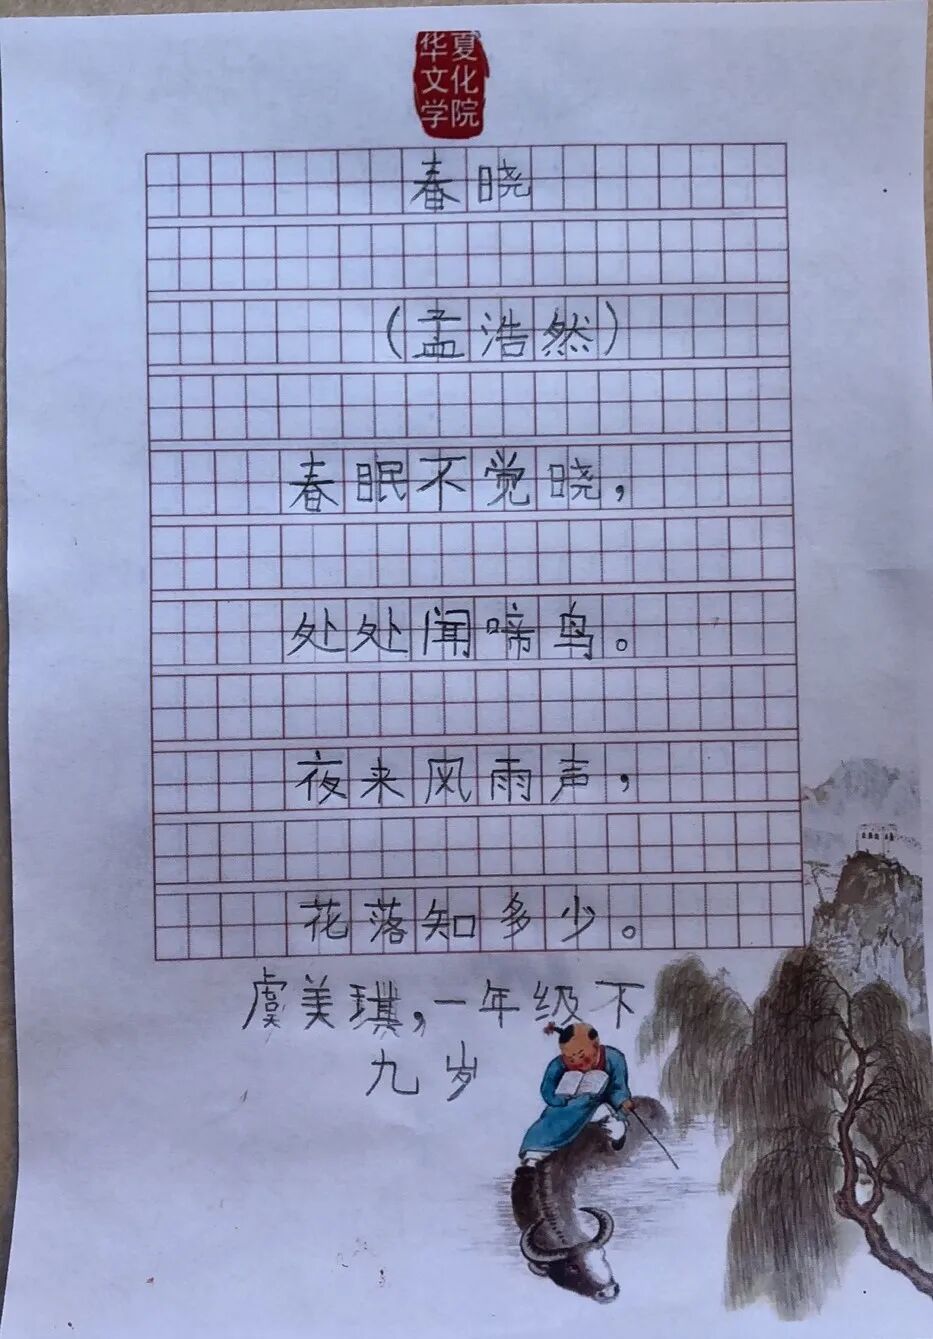 华夏
文化
学院
春晓
（孟浩然）
春眠不觉晓，
处处闻啼鸟。
夜来风雨声，
花落知多少。
虞美琪，一年级下
九岁